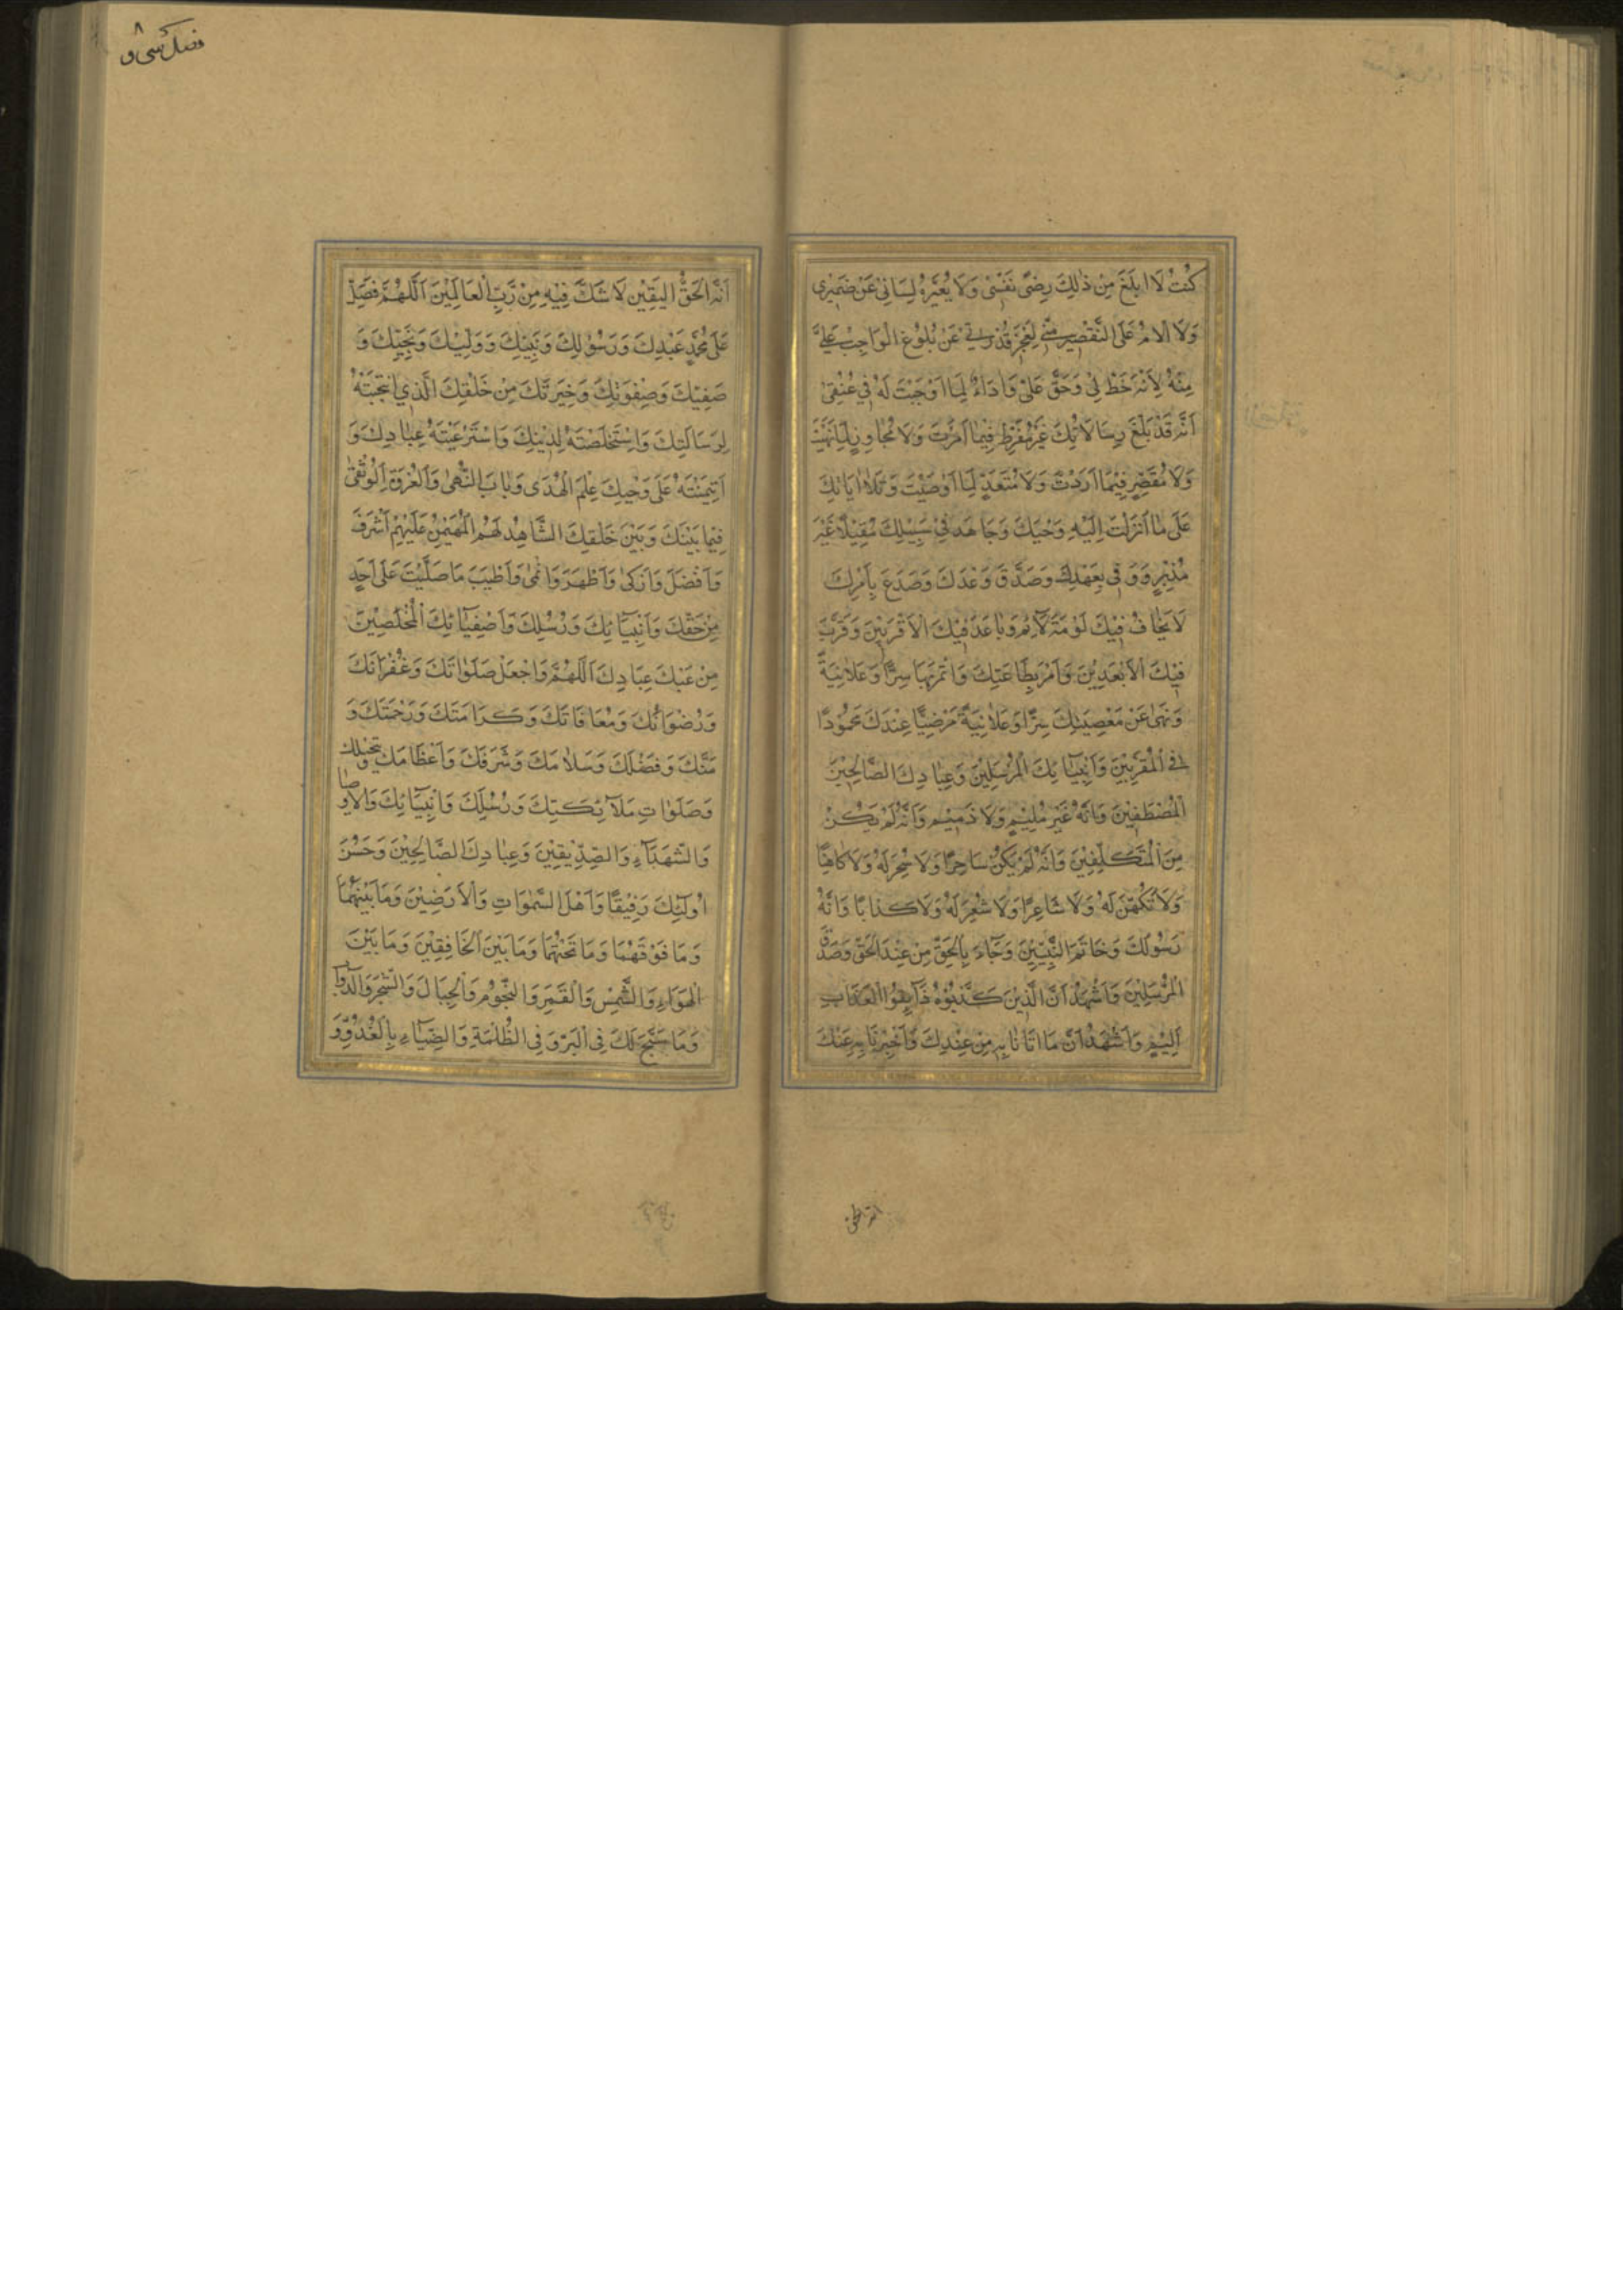 كُنْتُ لَا اَبْلَغُ مِنْ ذٰلِكَ رِضىٰ نَفْسىٖ وَلَا يُعَبِّرُهُ لِسَانىٖ عَنْ ضَمٖيرىٖ
وَلَا اُلَامُ عَلَى التَّقْصٖيرِ مِنّىٖ لِعَجْزِ قُدْرَتىٖ عَنْ بُلُوغِ الْوَاجِبِ عَلَىَّ
مِنْهُ لِاَنَّهُ حَظٌّ لىٖ وَحَقٌّ عَلَىَّ وَاَدَاءٌ لِمَا اَوْجَبْتَ لَهُ فىٖ عُنُقىٖ
اَنَّهُ قَدْ بَلَّغَ رِسَالَاتِكَ غَيْرَ مُفَرِّطٍ فٖيمَا اَمَرْتَ وَلَا مُجَاوِزٍ لِمَا نَهَيْتَ
وَلَا مُقَصِّرٍ فٖيمَا اَرَدْتَ وَلَا مُتَعَدٍّ لِمَا اَوْصَيْتَ وَتَلَا اٰيَاتِكَ
عَلٰى مَا اَنْزَلْتَ اِلَيْهِ وَحْيَكَ وَجَاهَدَ فىٖ سَبٖيلِكَ مُقْبِلًا غَيْرَ
مُدْبِرٍ وَوَفىٰ بِعَهْدِكَ وَصَدَّقَ وَعْدَكَ وَصَدَعَ بِاَمْرِكَ
لَا يَخَافُ فٖيكَ لَوْمَةَ لَائِمٍ وَبَاعَدَ فٖيكَ الْاَقْرَبٖينَ وَقَرَّبَ
فٖيكَ الْاَبْعَدٖينَ وَاَمَرَ بِطَاعَتِكَ وَائْتَمَرَ بِهَا سِرًّا وَعَلَانِيَةً
وَنَهىٰ عَنْ مَعْصِيَتِكَ سِرًّا وَعَلَانِيَةً مَرْضِيًّا عِنْدَكَ مَحْمُودًا
فِى الْمُقَرَّبٖينَ وَاَنْبِيَائِكَ الْمُرْسَلٖينَ وَعِبَادِكَ الصَّالِحٖينَ
الْمُصْطَفَيْنَ وَاَنَّهُ غَيْرُ مُلٖيمٍ وَلَا ذَمٖيمٍ وَاَنَّهُ لَمْ يَكُنْ
مِنَ الْمُتَكَلِّفٖينَ وَاَنَّهُ لَمْ يَكُنْ سَاحِرًا وَلَا سُحِرَ لَهُ وَلَا كَاهِنًا
وَلَا تُكُهِّنَ لَهُ وَلَا شَاعِرًا وَلَا شُعِرَ لَهُ وَلَا كَذَّابًا وَاَنَّهُ
رَسُولُكَ وَخَاتَمُ النَّبِيّٖينَ وَجَاءَ بِالْحَقِّ مِنْ عِنْدِ الْحَقِّ وَصَدَّقَ
الْمُرْسَلٖينَ وَاَشْهَدُ اَنَّ الَّذٖينَ كَذَّبُوهُ ذَائِقُوا الْعَذَابِ
الْاَلٖيمِ وَاَشْهَدُ اَنَّ مَا اَتَانَا بِهِ مِنْ عِنْدِكَ وَاَخْبَرَنَا بِهِ عَنْكَ
فضل سى و
٨
اَنَّهُ الْحَقُّ الْيَقٖينُ لَا شَكَّ فٖيهِ مِنْ رَبِّ الْعَالَمٖينَ اَللّٰهُمَّ فَصَلِّ
عَلٰى مُحَمَّدٍ عَبْدِكَ وَرَسُولِكَ وَنَبِيِّكَ وَوَلِيِّكَ وَنَجِيِّكَ وَ
صَفِيِّكَ وَصِفْوَتِكَ وَخِيَرَتِكَ مِنْ خَلْقِكَ الَّذِى انْتَجَبْتَهُ
لِرِسَالَتِكَ وَاسْتَخْلَصْتَهُ لِدٖينِكَ وَاسْتَرْعَيْتَهُ عِبَادَكَ وَ
ائْتَمَنْتَهُ عَلٰى وَحْيِكَ عَلَمِ الْهُدىٰ وَبَابِ النُّهىٰ وَالْعُرْوَةِ الْوُثْقىٰ
فٖيمَا بَيْنَكَ وَبَيْنَ خَلْقِكَ الشَّاهِدِ لَهُمْ الْمُهَيْمِنِ عَلَيْهِمْ اَشْرَفَ
وَاَفْضَلَ وَاَزْكىٰ وَاَطْهَرَ وَاَنْمىٰ وَاَطْيَبَ مَا صَلَّيْتَ عَلٰى اَحَدٍ
مِنْ خَلْقِكَ وَاَنْبِيَائِكَ وَرُسُلِكَ وَاَصْفِيَائِكَ الْمُخْلَصٖينَ
مِنْ عِبَادِكَ اَللّٰهُمَّ وَاجْعَلْ صَلَوَاتِكَ وَغُفْرَانَكَ
وَرِضْوَانَكَ وَمُعَافَاتَكَ وَكَرَامَتَكَ وَرَحْمَتَكَ وَ
مَنَّكَ وَفَضْلَكَ وَسَلَامَكَ وَشَرَفَكَ وَاِعْظَامَكَ وَتَبْجٖيلَكَ
وَصَلَوَاتِ مَلَائِكَتِكَ وَرُسُلِكَ وَاَنْبِيَائِكَ وَالْاَوْصِيَا
وَالشُّهَدَاءِ وَالصِّدّٖيقٖينَ وَعِبَادِكَ الصَّالِحٖينَ وَحَسُنَ
اُولٰئِكَ رَفٖيقًا وَاَهْلِ السَّمٰوَاتِ وَالْاَرَضٖينَ وَمَا بَيْنَهُمَا
وَمَا فَوْقَهُمَا وَمَا تَحْتَهُمَا وَمَا بَيْنَ الْخَافِقَيْنِ وَمَا بَيْنَ
الْهَوَاءِ وَالشَّمْسِ وَالْقَمَرِ وَالنُّجُومِ وَالْجِبَالِ وَالشَّجَرِ وَالدَّوَابِّ
وَمَا سَبَّحَ لَكَ فِى الْبَرِّ وَفِى الظُّلْمَةِ وَالضِّيَاءِ بِالْغُدُوِّ وَ